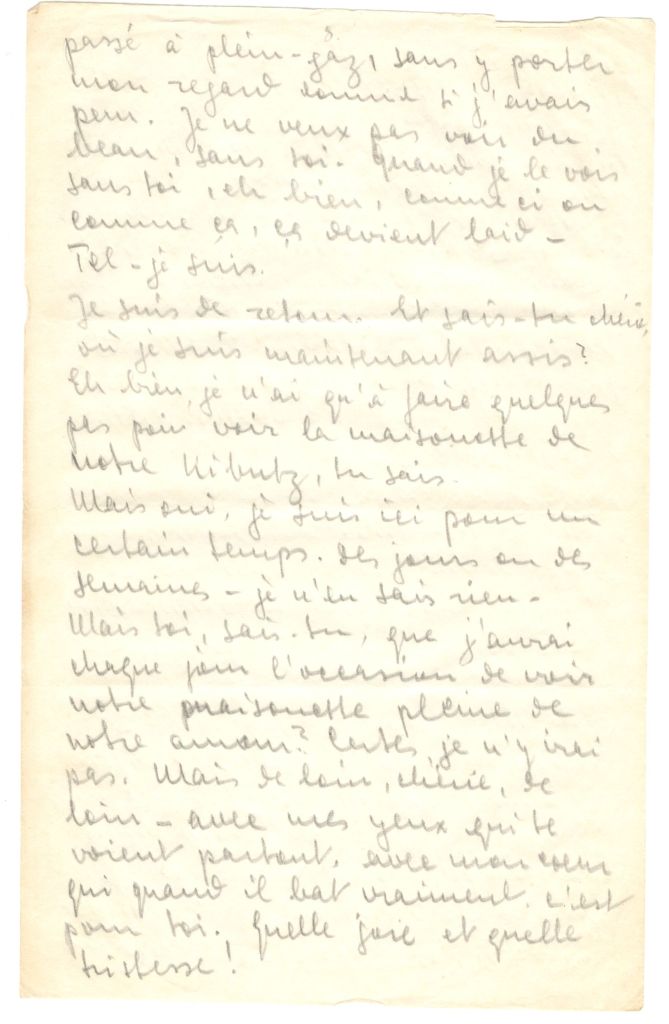 passé à plein-gâz, sans y porter
mon regard comme si j'avais
peur. Je ne veux pas voir du
beau, sans toi. Quand je le vois
sans toi, eh bien, comme ci ou
comme ça, ça devient laid –
Tel - je suis.
Je suis de retour. Et sais-tu chérie,
où je suis maintenant assis?
Eh bien, je n'ai qu'à faire quelques
pas pour voir la maisonette de
notre Kibutz, tu sais.
Mais oui, je suis ici pour un
certain temps. des jours ou des
semaines – je n'en sais rien –
Mais toi, sais-tu, que j'aurai
chaque jour l'occasion de voir
notre maisonette pleine de
notre amour? Certes je n'y irai
pas. Mais de loin, chérie, de
loin – avec mes yeux qui te
voient partout, avec mon coeur
qui quand il bat vraiment, c'est
pour toi. Quelle joie et quelle
tristesse!